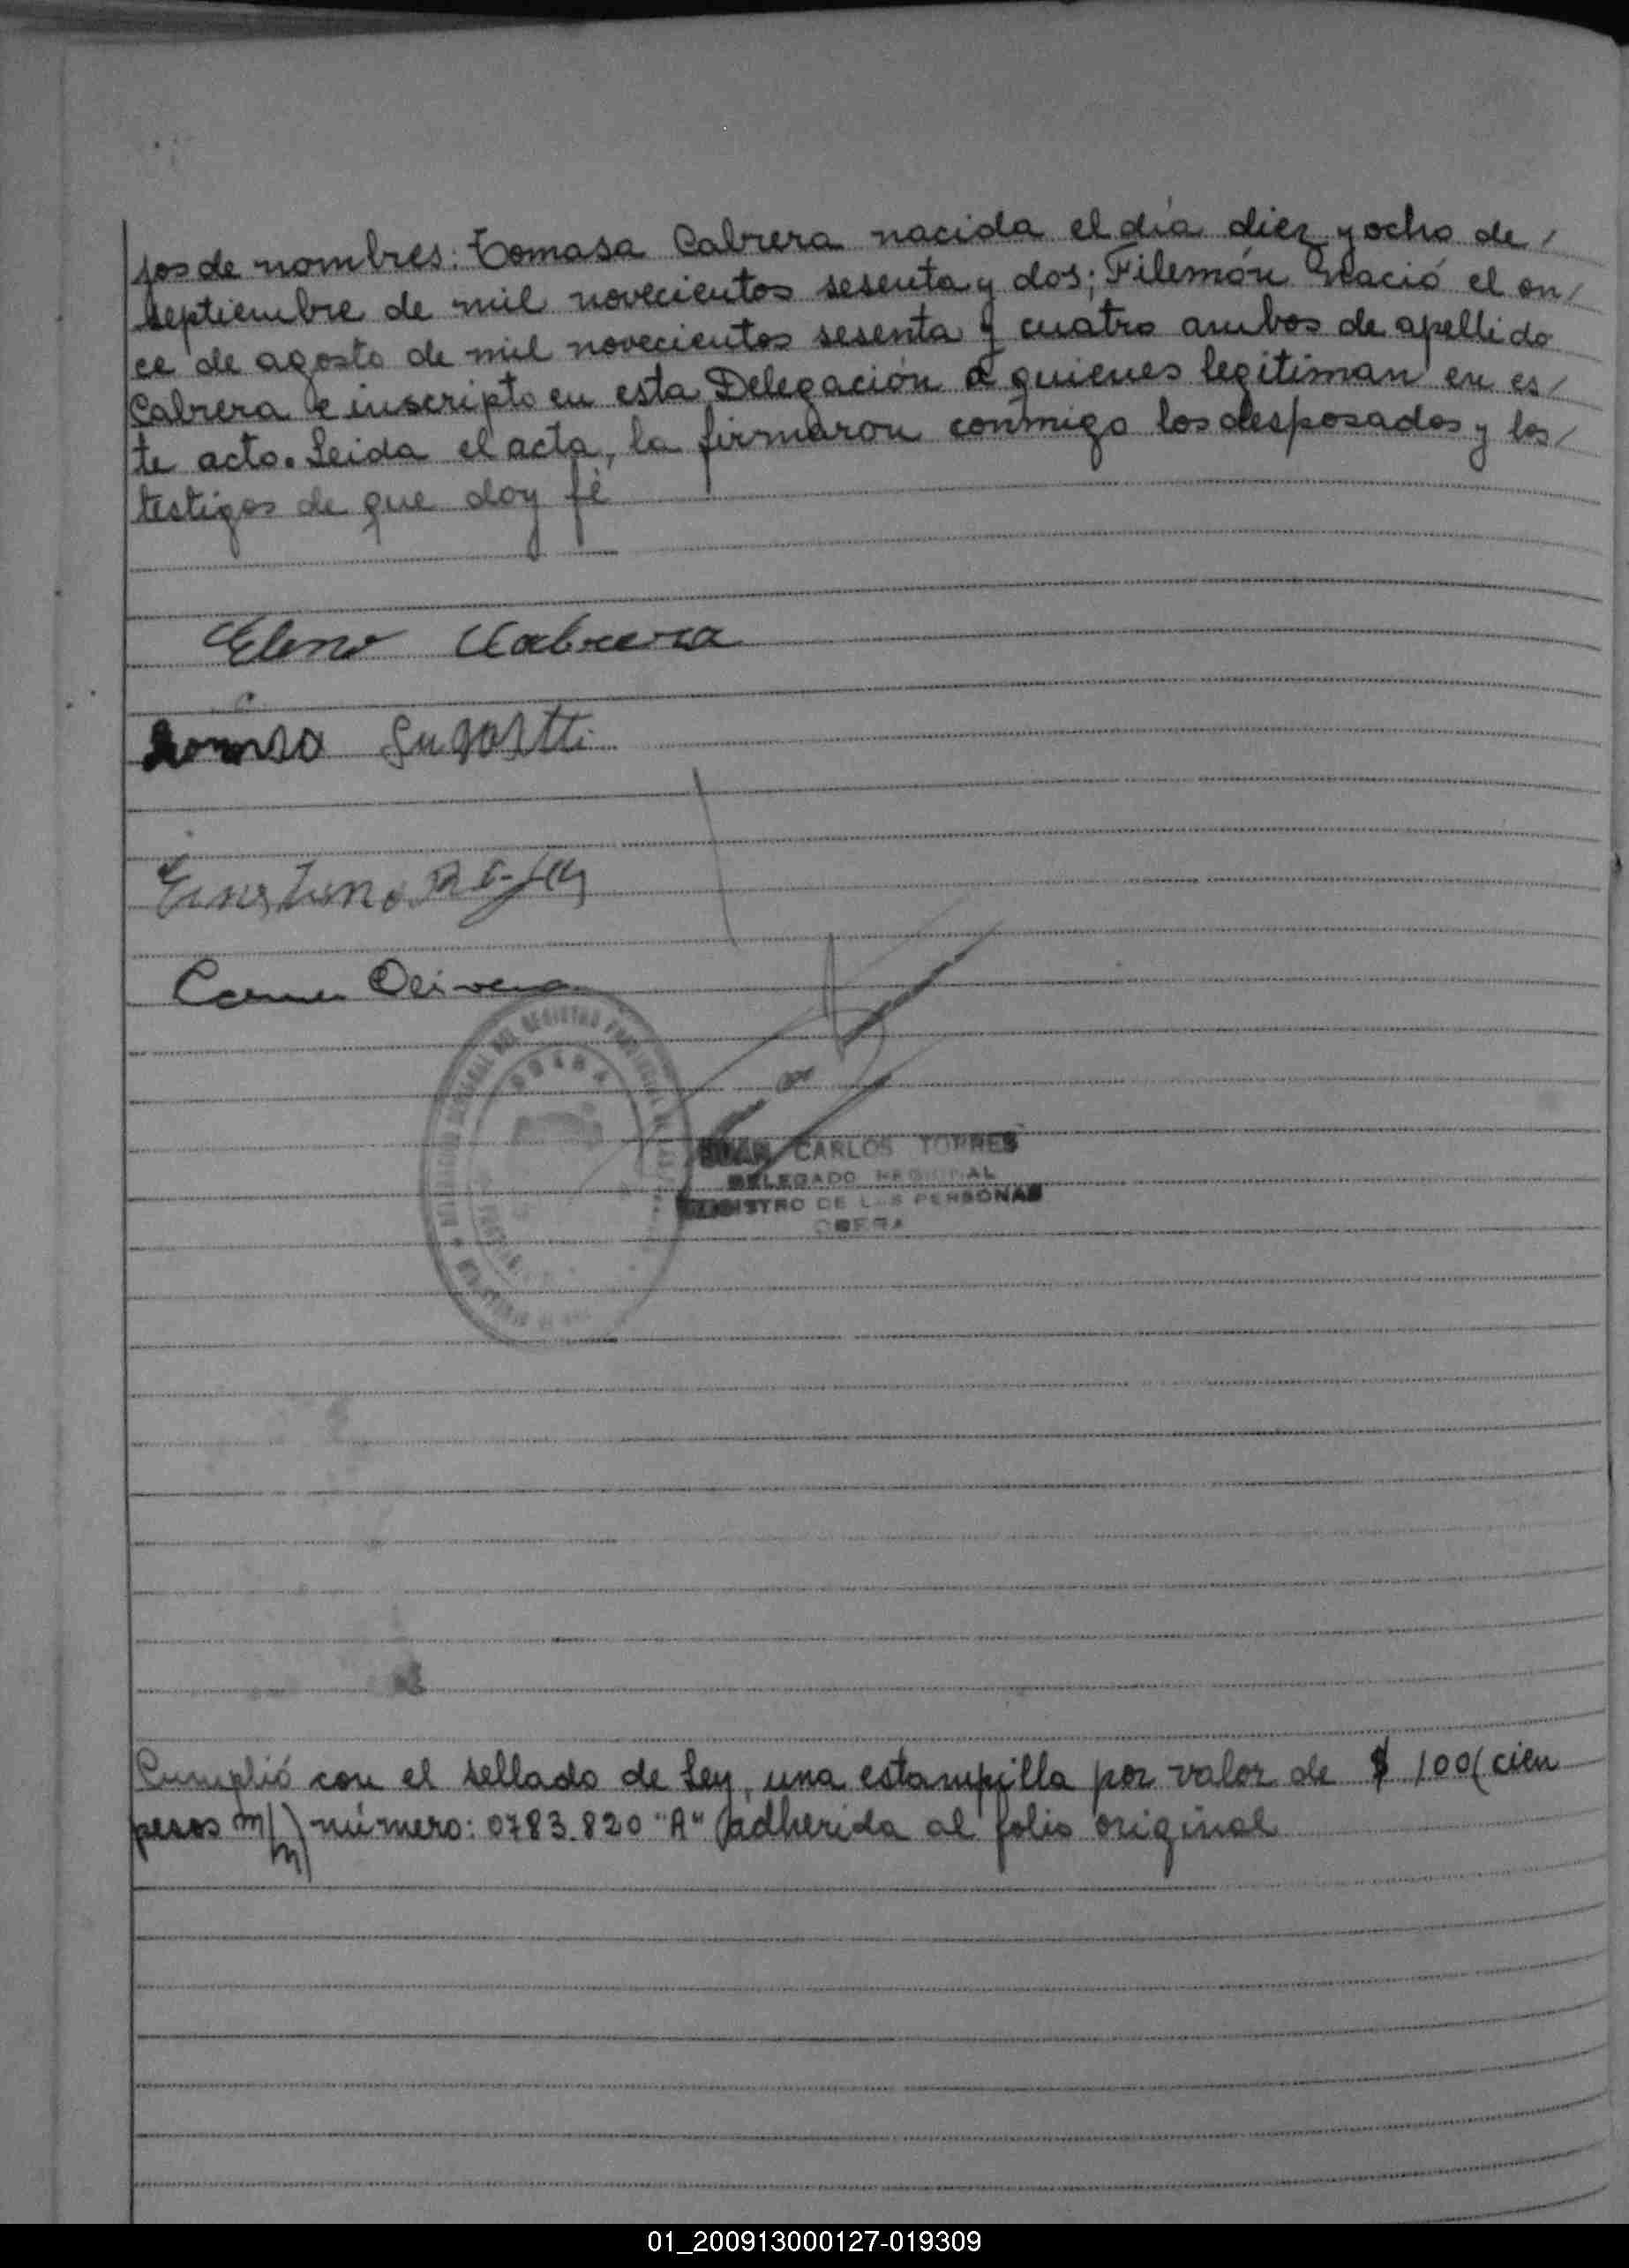 jos de nombres: Tomasa Cabrera nacida el día diez y ocho de /
septiembre de mil novecientos sesenta y dos; Filemón nació el on/
ce de agosto de mil novecientos sesenta y cuatro ambos de apellido
Cabrera e inscripto en esta Delegación a quienes legitiman en es/
te acto. Leida el acta, la firmaron conmigo los desposados y los/
testigos de que doy fé
Cabrera
Carmen Olivera
OBERA
JUAN CARLOS TORRES
DELEGADO REGIONAL
REGISTRO DE LAS PERSONAS
OBERA
Cumplió con el sellado de Ley, una estampilla por valor de $ 100 (cien
pesos m/n) número: 0783.820 "A" adherida al folio original
01_200913000127-019309